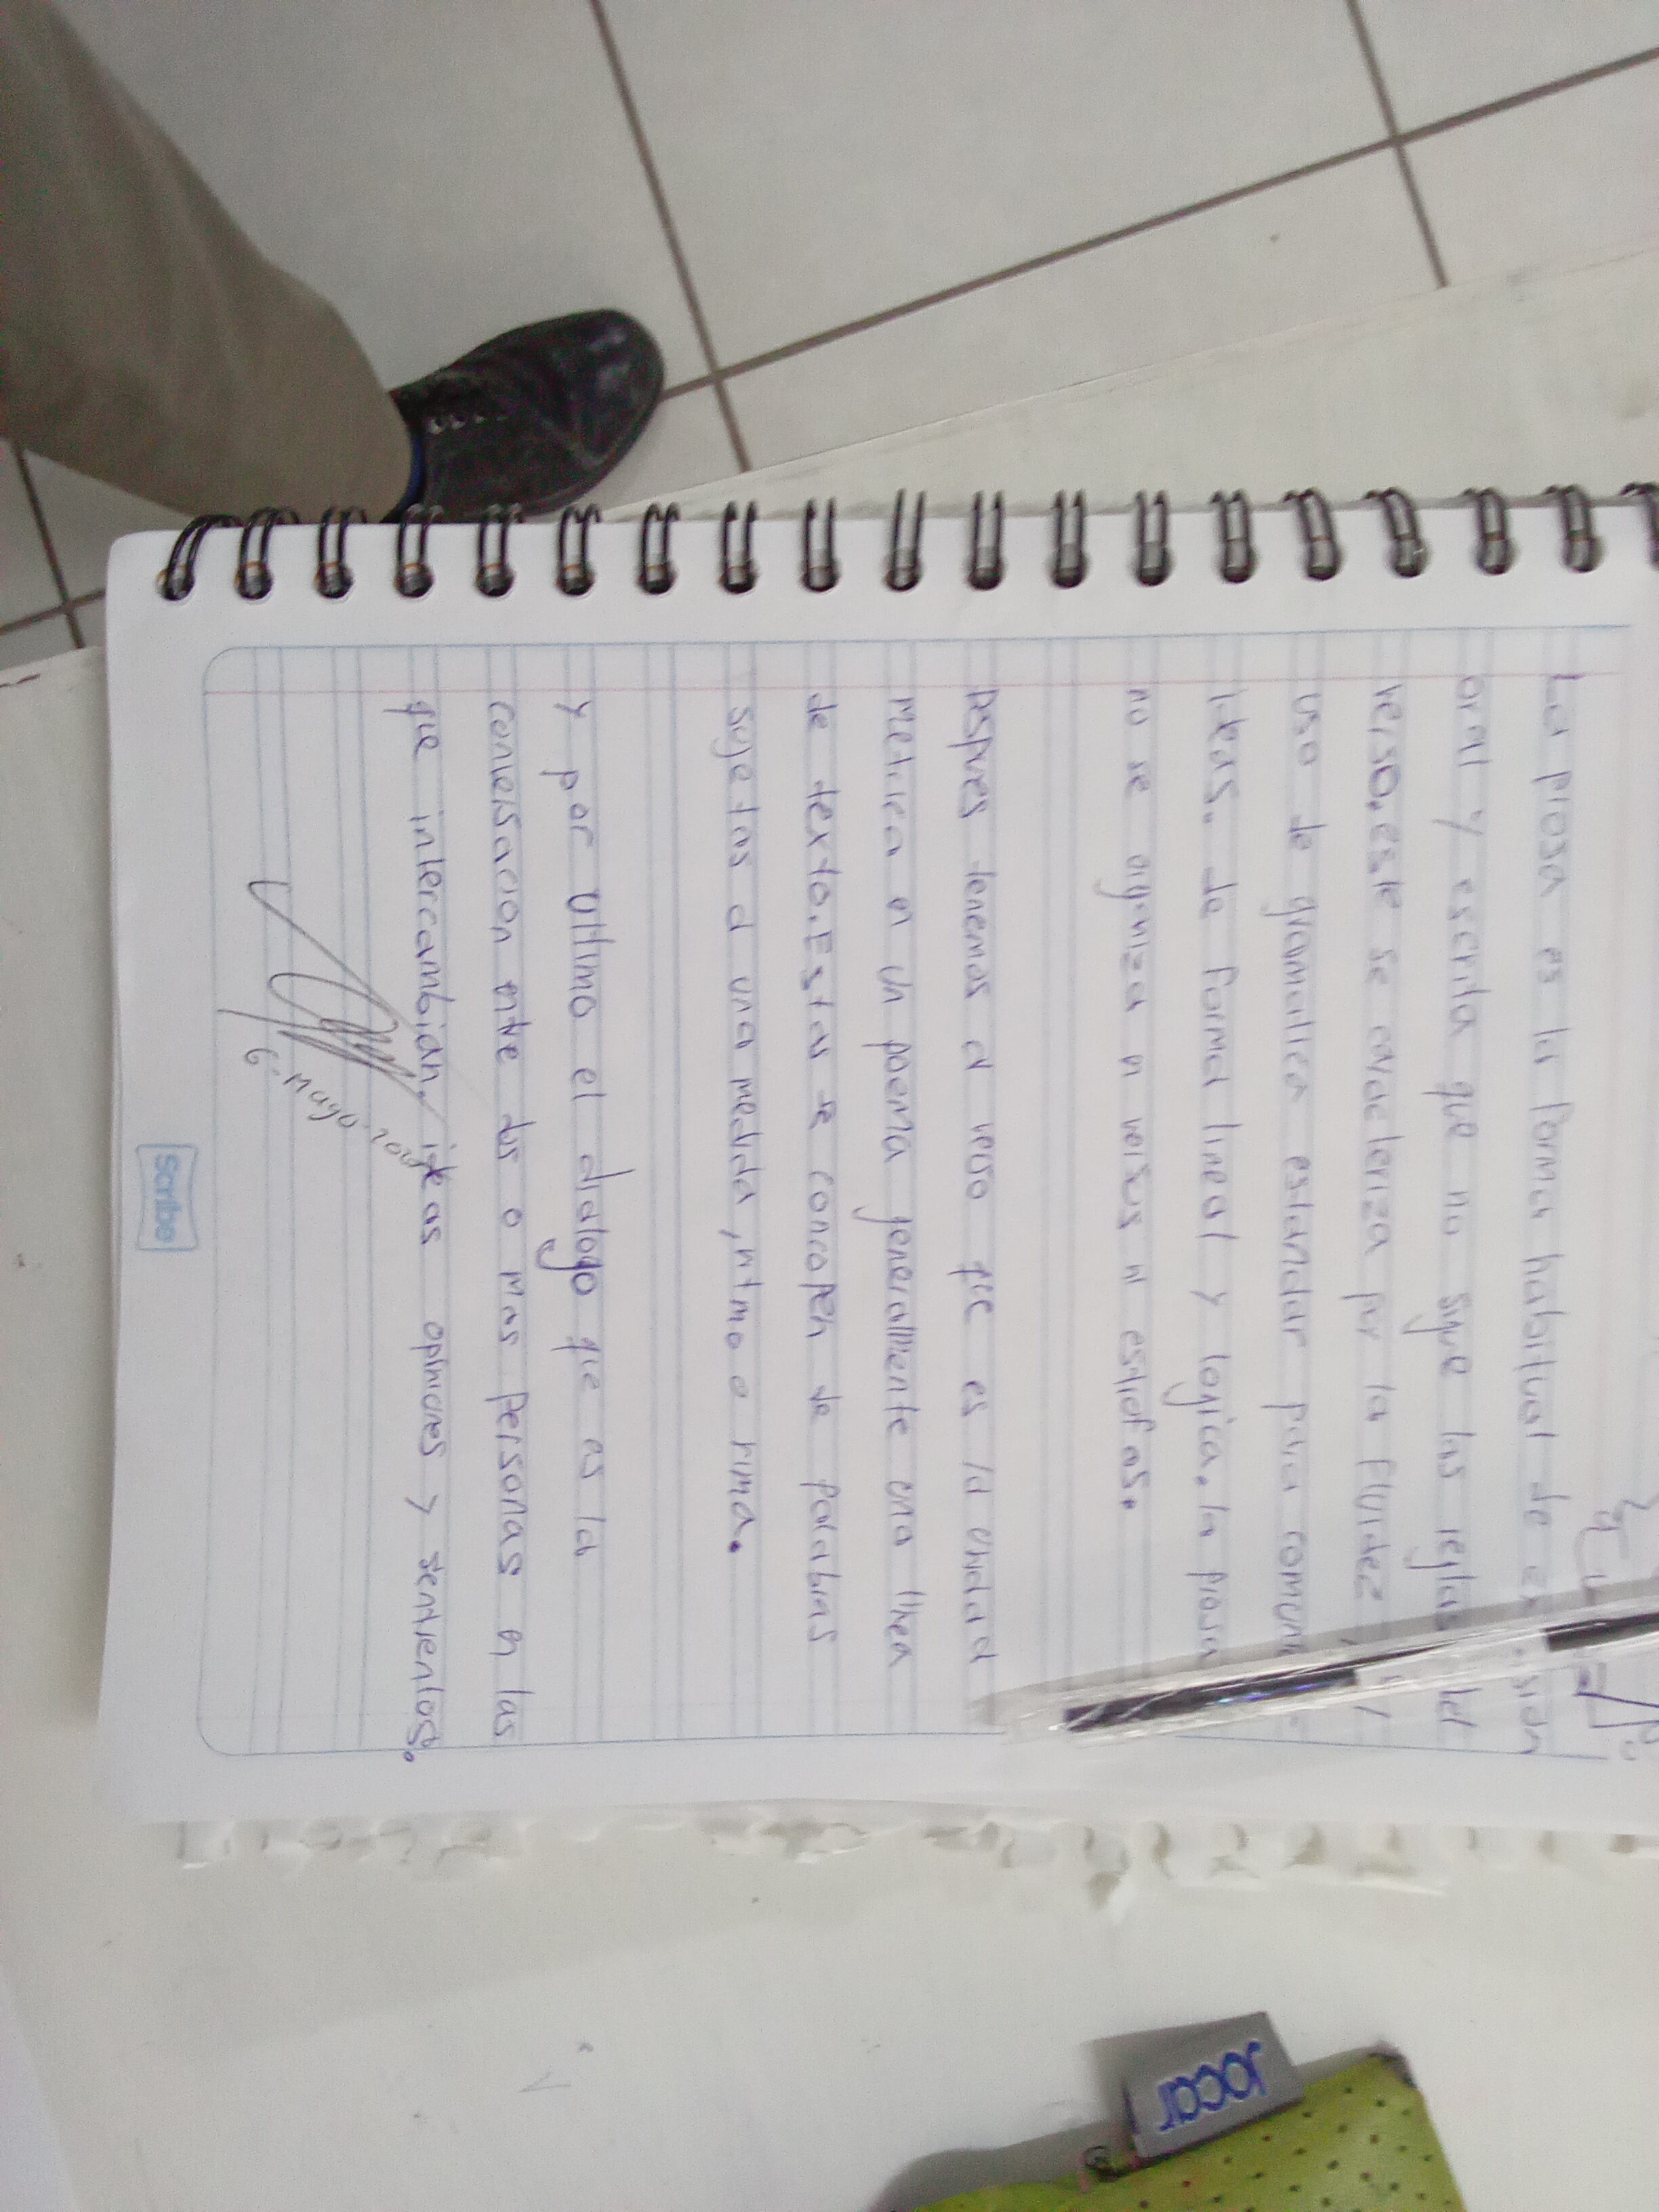 La prosa es la forma habitual de expresion
oral y escrita que no sigue las reglas del
verso. este se caracteriza por la fluidez, el
uso de gramatica estandar para comuni
ideas. de forma lineal y logica. la prosa
no se organiza en versos ni estrofas.
Despues tenemos el verso que es la unidad
Metrica en un poema generalmente una linea
de texto. Estas se conropen de palabras
sujetas a una medida, ritmo o rima.
y por Ultimo el dialogo que es la
conversacion entre dos o mas personas en las
que intercambian. ideas opiniones y sentientos.
6-Mayo-
Scribe
Jocar